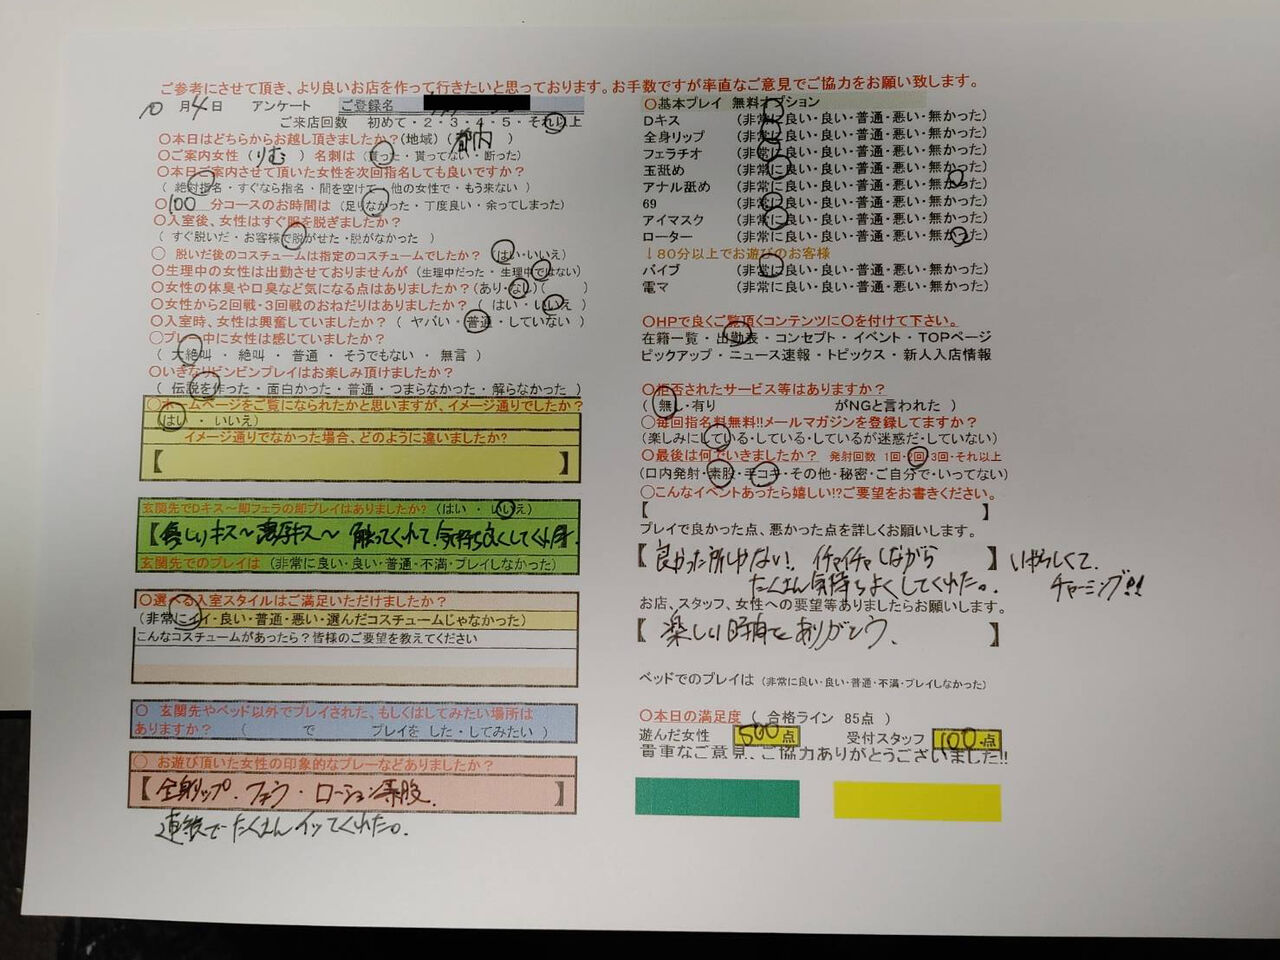 ご参考にさせて頂き、より良いお店を作って行きたいと思っております。お手数ですが率直なご意見でご協力をお願い致します。
10 月 4 日 アンケート ご登録名
ご来店回数 初めて・2・3・4・5・それ以上
〇本日はどちらからお越し頂きましたか?(地域) ( 都内 )
〇ご案内女性 ( りむ ) 名刺は (貰った・貰ってない・断った)
〇本日ご案内させて頂いた女性を次回指名しても良いですか?
( 絶対指名・すぐなら指名・間を空けて・他の女性で・もう来ない )
〇 100 分コースのお時間は (足りなかった・丁度良い・余ってしまった)
〇入室後、女性はすぐ服を脱ぎましたか?
( すぐ脱いだ・お客様で脱がせた・脱がなかった )
〇 脱いだ後のコスチュームは指定のコスチュームでしたか? (はい・いいえ)
〇生理中の女性は出勤させておりませんが (生理中だった・生理中ではない)
〇女性の体臭や口臭など気になる点はありましたか?(あり・なし)( )
〇女性から2回戦・3回戦のおねだりはありましたか? ( はい・いいえ )
〇入室時、女性は興奮していましたか? ( ヤバい・普通・していない )
〇プレイ中に女性は感じていましたか?
( 大絶叫・絶叫・普通・そうでもない・無言 )
〇いきなりビンビンプレイはお楽しみ頂けましたか?
( 伝説を作った・面白かった・普通・つまらなかった・解らなかった )
〇ホームページをご覧になられたかと思いますが、イメージ通りでしたか?
(はい ・ いいえ)
イメージ通りでなかった場合、どのように違いましたか?
【 】
玄関先でDキス～即フェラの即プレイはありましたか? (はい ・ いいえ)
【優しいキス～濃厚キス～ 触ってくれて気持ち良くしてくれ
玄関先でのプレイは (非常に良い・良い・普通・不満・プレイしなかった)
〇選べる入室スタイルはご満足いただけましたか?
(非常にイイ・良い・普通・悪い・選んだコスチュームじゃなかった)
こんなコスチュームがあったら?皆様のご要望を教えてください
〇 玄関先やベッド以外でプレイされた、もしくはしてみたい場所は
ありますか? ( で プレイを した・してみたい )
〇 お遊び頂いた女性の印象的なプレーなどありましたか?
【全身リップ・フェラ・ローション素股 】
連続でたくさんイッてくれた。
〇基本プレイ 無料オプション
Dキス (非常に良い・良い・普通・悪い・無かった)
全身リップ (非常に良い・良い・普通・悪い・無かった)
フェラチオ (非常に良い・良い・普通・悪い・無かった)
玉舐め (非常に良い・良い・普通・悪い・無かった)
アナル舐め (非常に良い・良い・普通・悪い・無かった)
69 (非常に良い・良い・普通・悪い・無かった)
アイマスク (非常に良い・良い・普通・悪い・無かった)
ローター (非常に良い・良い・普通・悪い・無かった)
↓80分以上でお遊びのお客様
バイブ (非常に良い・良い・普通・悪い・無かった)
電マ (非常に良い・良い・普通・悪い・無かった)
〇HPで良くご覧頂くコンテンツに〇を付けて下さい。
在籍一覧・出勤表・コンセプト・イベント・TOPページ
ピックアップ・ニュース速報・トピックス・新人入店情報
〇拒否されたサービス等はありますか?
(無し・有り がNGと言われた )
〇毎回指名料無料!!メールマガジンを登録してますか?
(楽しみにしている・している・しているが迷惑だ・していない)
〇最後は何でいきましたか? 発射回数 1回・2回・3回・それ以上
(口内発射・素股・手コキ・その他・秘密・ご自分で・いってない)
〇こんなイベントあったら嬉しい!?ご要望をお書きください。
【 】
プレイで良かった点、悪かった点を詳しくお願いします。
【良かった所しかない! イチャイチャしながら 】いやらしくて、
たくさん気持ちよくしてくれた。 チャーミング!!
お店、スタッフ、女性への要望等ありましたらお願いします。
【 楽しい時間をありがとう、 】
ベッドでのプレイは (非常に良い・良い・普通・不満・プレイしなかった)
〇本日の満足度 ( 合格ライン 85点 )
遊んだ女性 500点 受付スタッフ 100点
貴重なご意見、ご協力ありがとうございました!!